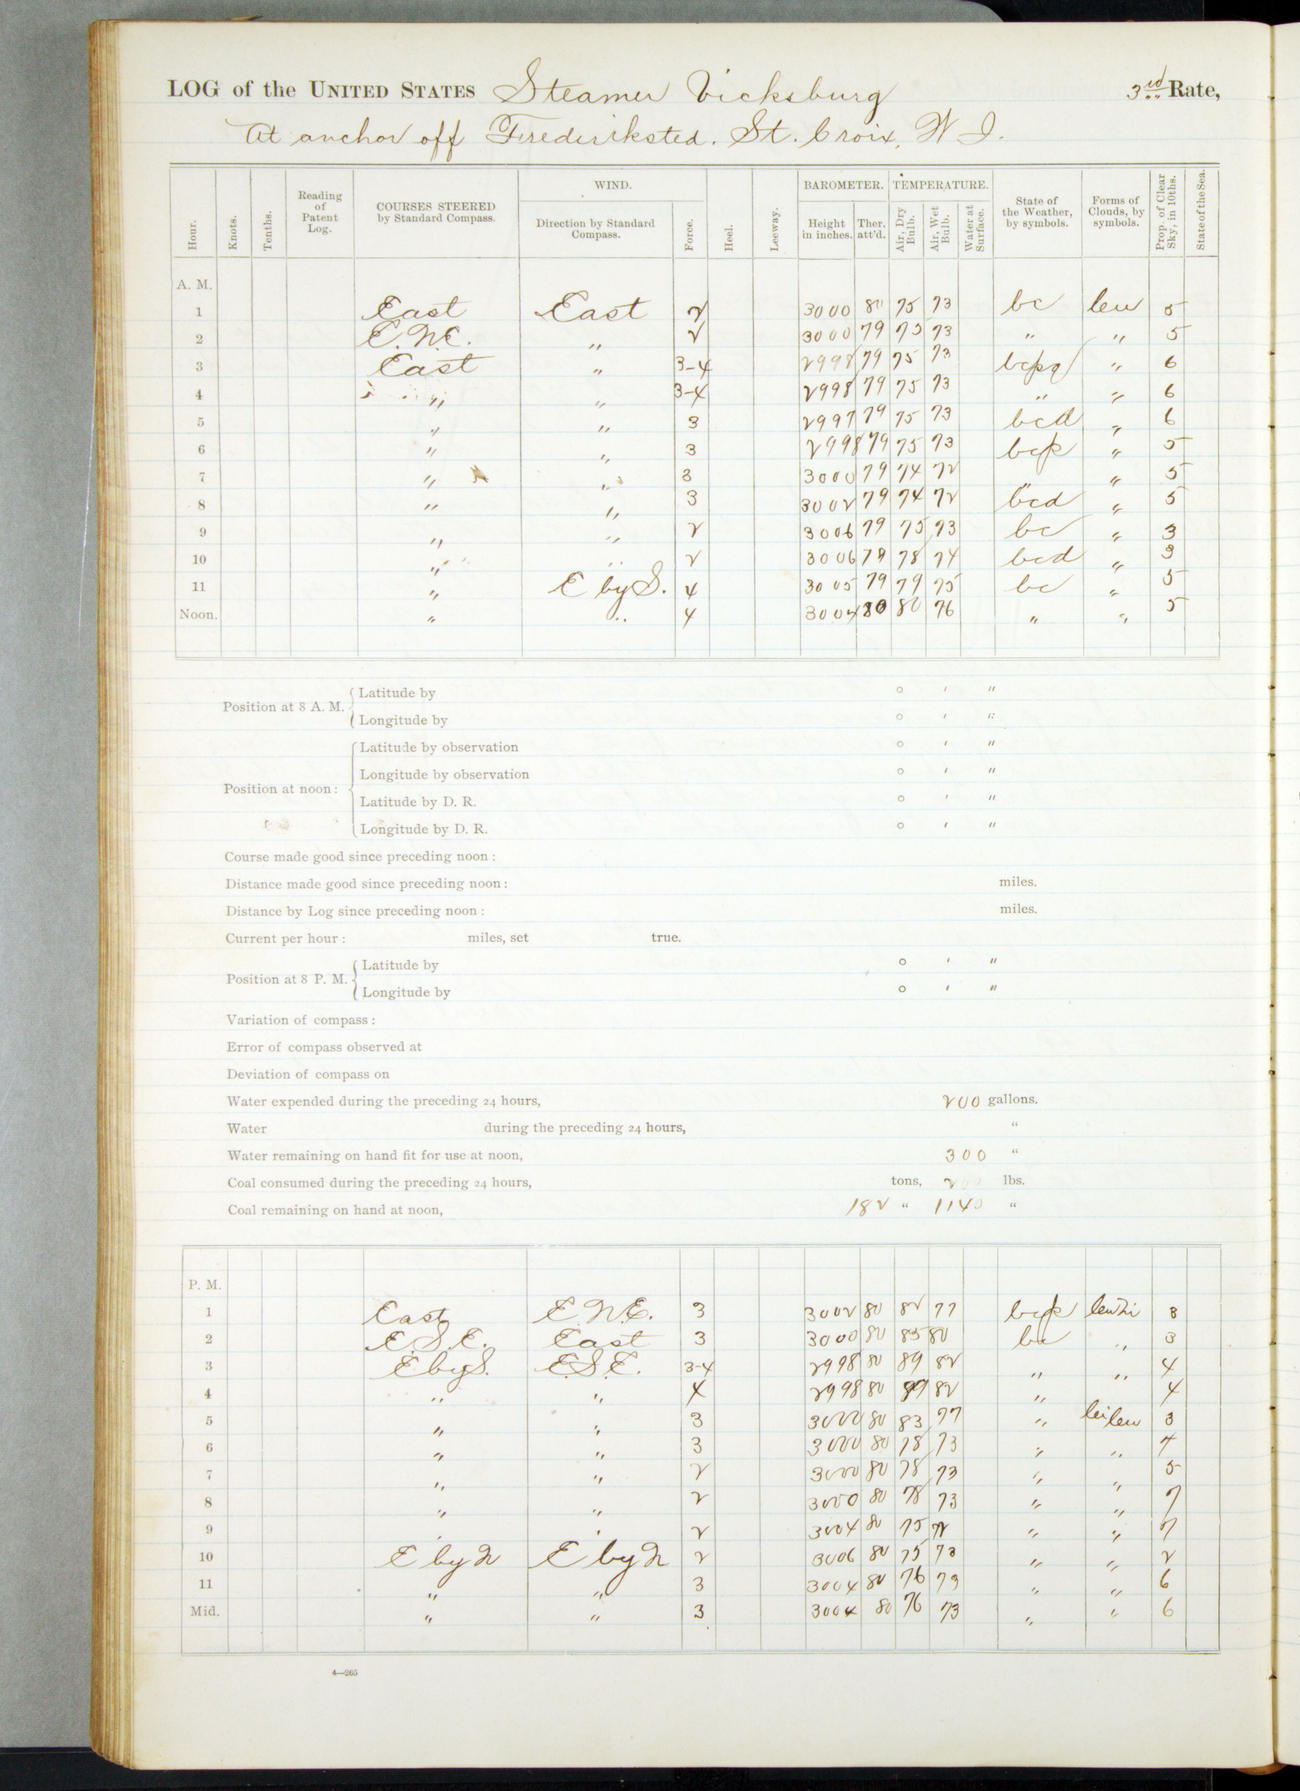 LOG of the UNITED STATES Steamer Vicksburg 3rd Rate,
At anchor off Frederiksted. St. Croix, W I.
Hour. Knots. Tenths. Reading of Patent Log. COURSES STEERED by Standard Compass. WIND. Direction by Standard Compass. Force. Heel. Leeway. BAROMETER. Height in inches. Ther. att'd. TEMPERATURE. Air, Dry Bulb. Air, Wet Bulb. Water at Surface. State of the Weather, by symbols. Forms of Clouds, by symbols. Prop. of Clear Sky, in 10ths. State of the Sea.
A. M.
1 East East 2 3000 80 75 73 bc cu 5
2 E.N.E. " 2 3000 79 75 73 " " 5
3 East " 3-4 2998 79 75 73 bcpq " 6
4 " " 3-4 2998 79 75 73 " " 6
5 " " 3 2997 79 75 73 bcd " 6
6 " " 3 2998 79 75 73 bcp " 5
7 " " 3 3000 79 74 72 " " 5
8 " " 3 3002 79 74 72 bcd " 5
9 " " 2 3006 79 75 73 bc " 3
10 " " 2 3006 79 78 74 bcd " 3
11 " E by S. 4 3005 79 79 75 bc " 5
Noon. " " 4 3004 80 80 76 " " 5
Position at 8 A. M. { Latitude by ° ' "
Longitude by ° ' "
Position at noon : { Latitude by observation ° ' "
Longitude by observation ° ' "
Latitude by D. R. ° ' "
Longitude by D. R. ° ' "
Course made good since preceding noon :
Distance made good since preceding noon : miles.
Distance by Log since preceding noon : miles.
Current per hour : miles, set true.
Position at 8 P. M. { Latitude by ° ' "
Longitude by ° ' "
Variation of compass :
Error of compass observed at
Deviation of compass on
Water expended during the preceding 24 hours, 200 gallons.
Water during the preceding 24 hours, "
Water remaining on hand fit for use at noon, 300 "
Coal consumed during the preceding 24 hours, tons, lbs.
Coal remaining on hand at noon, 182 " 1140 "
P. M.
1 East E.N.E. 3 3002 80 82 77 bcp 3
2 E.S.E. East 3 3000 80 85 80 bc " 3
3 E by S. E.S.E. 3-4 2998 80 89 82 " " 4
4 " " 4 2998 80 89 82 " " 4
5 " " 3 3000 80 83 77 " 3
6 " " 3 3000 80 78 73 " " 4
7 " " 2 3000 80 78 73 " " 5
8 " " 2 3000 80 78 73 " " 7
9 " " 2 3004 80 75 72 " " 7
10 E by N E by N 2 3006 80 75 73 " " 2
11 " " 3 3004 80 76 73 " " 6
Mid. " " 3 3004 80 76 73 " " 6
4—265